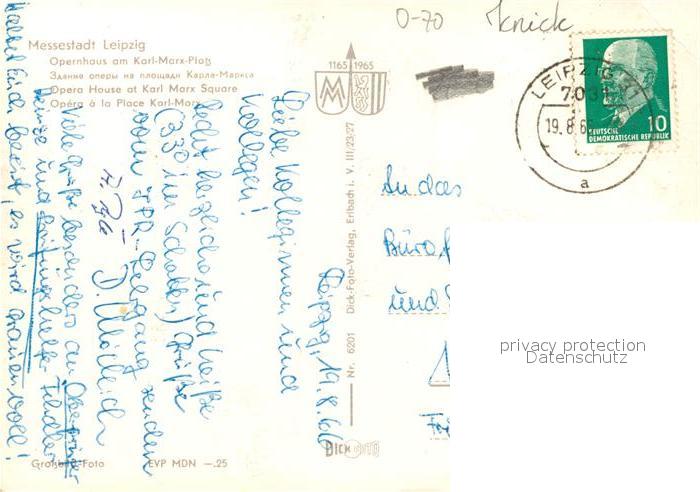 O-70
Knick
Messestadt Leipzig
Opernhaus am Karl-Marx-Platz
Здание оперы на площади Карла-Маркса
Opera House at Karl Marx Square
Opéra à la Place Karl-Marx
1165 1965
MM
LEIPZIG
7031
19.8.6
a
10
DEUTSCHE
DEMOKRATISCHE REPUBLIK
Leipzig, 19.8.66
Liebe Kolleginnen und
Kollegen!
Recht herzliche und heiße
(33° im Schatten) Grüße
vom Lehrgang senden
D.
Viele Grüße besonders an
und
Haltet Euch bereit, es wird grauenvoll!
An das
Büro f
und
Nr. 6201 Dick-Foto-Verlag, Erlbach i. V. III/23/27
DICK FOTO
Großbild-Foto EVP MDN —.25
privacy protection
Datenschutz